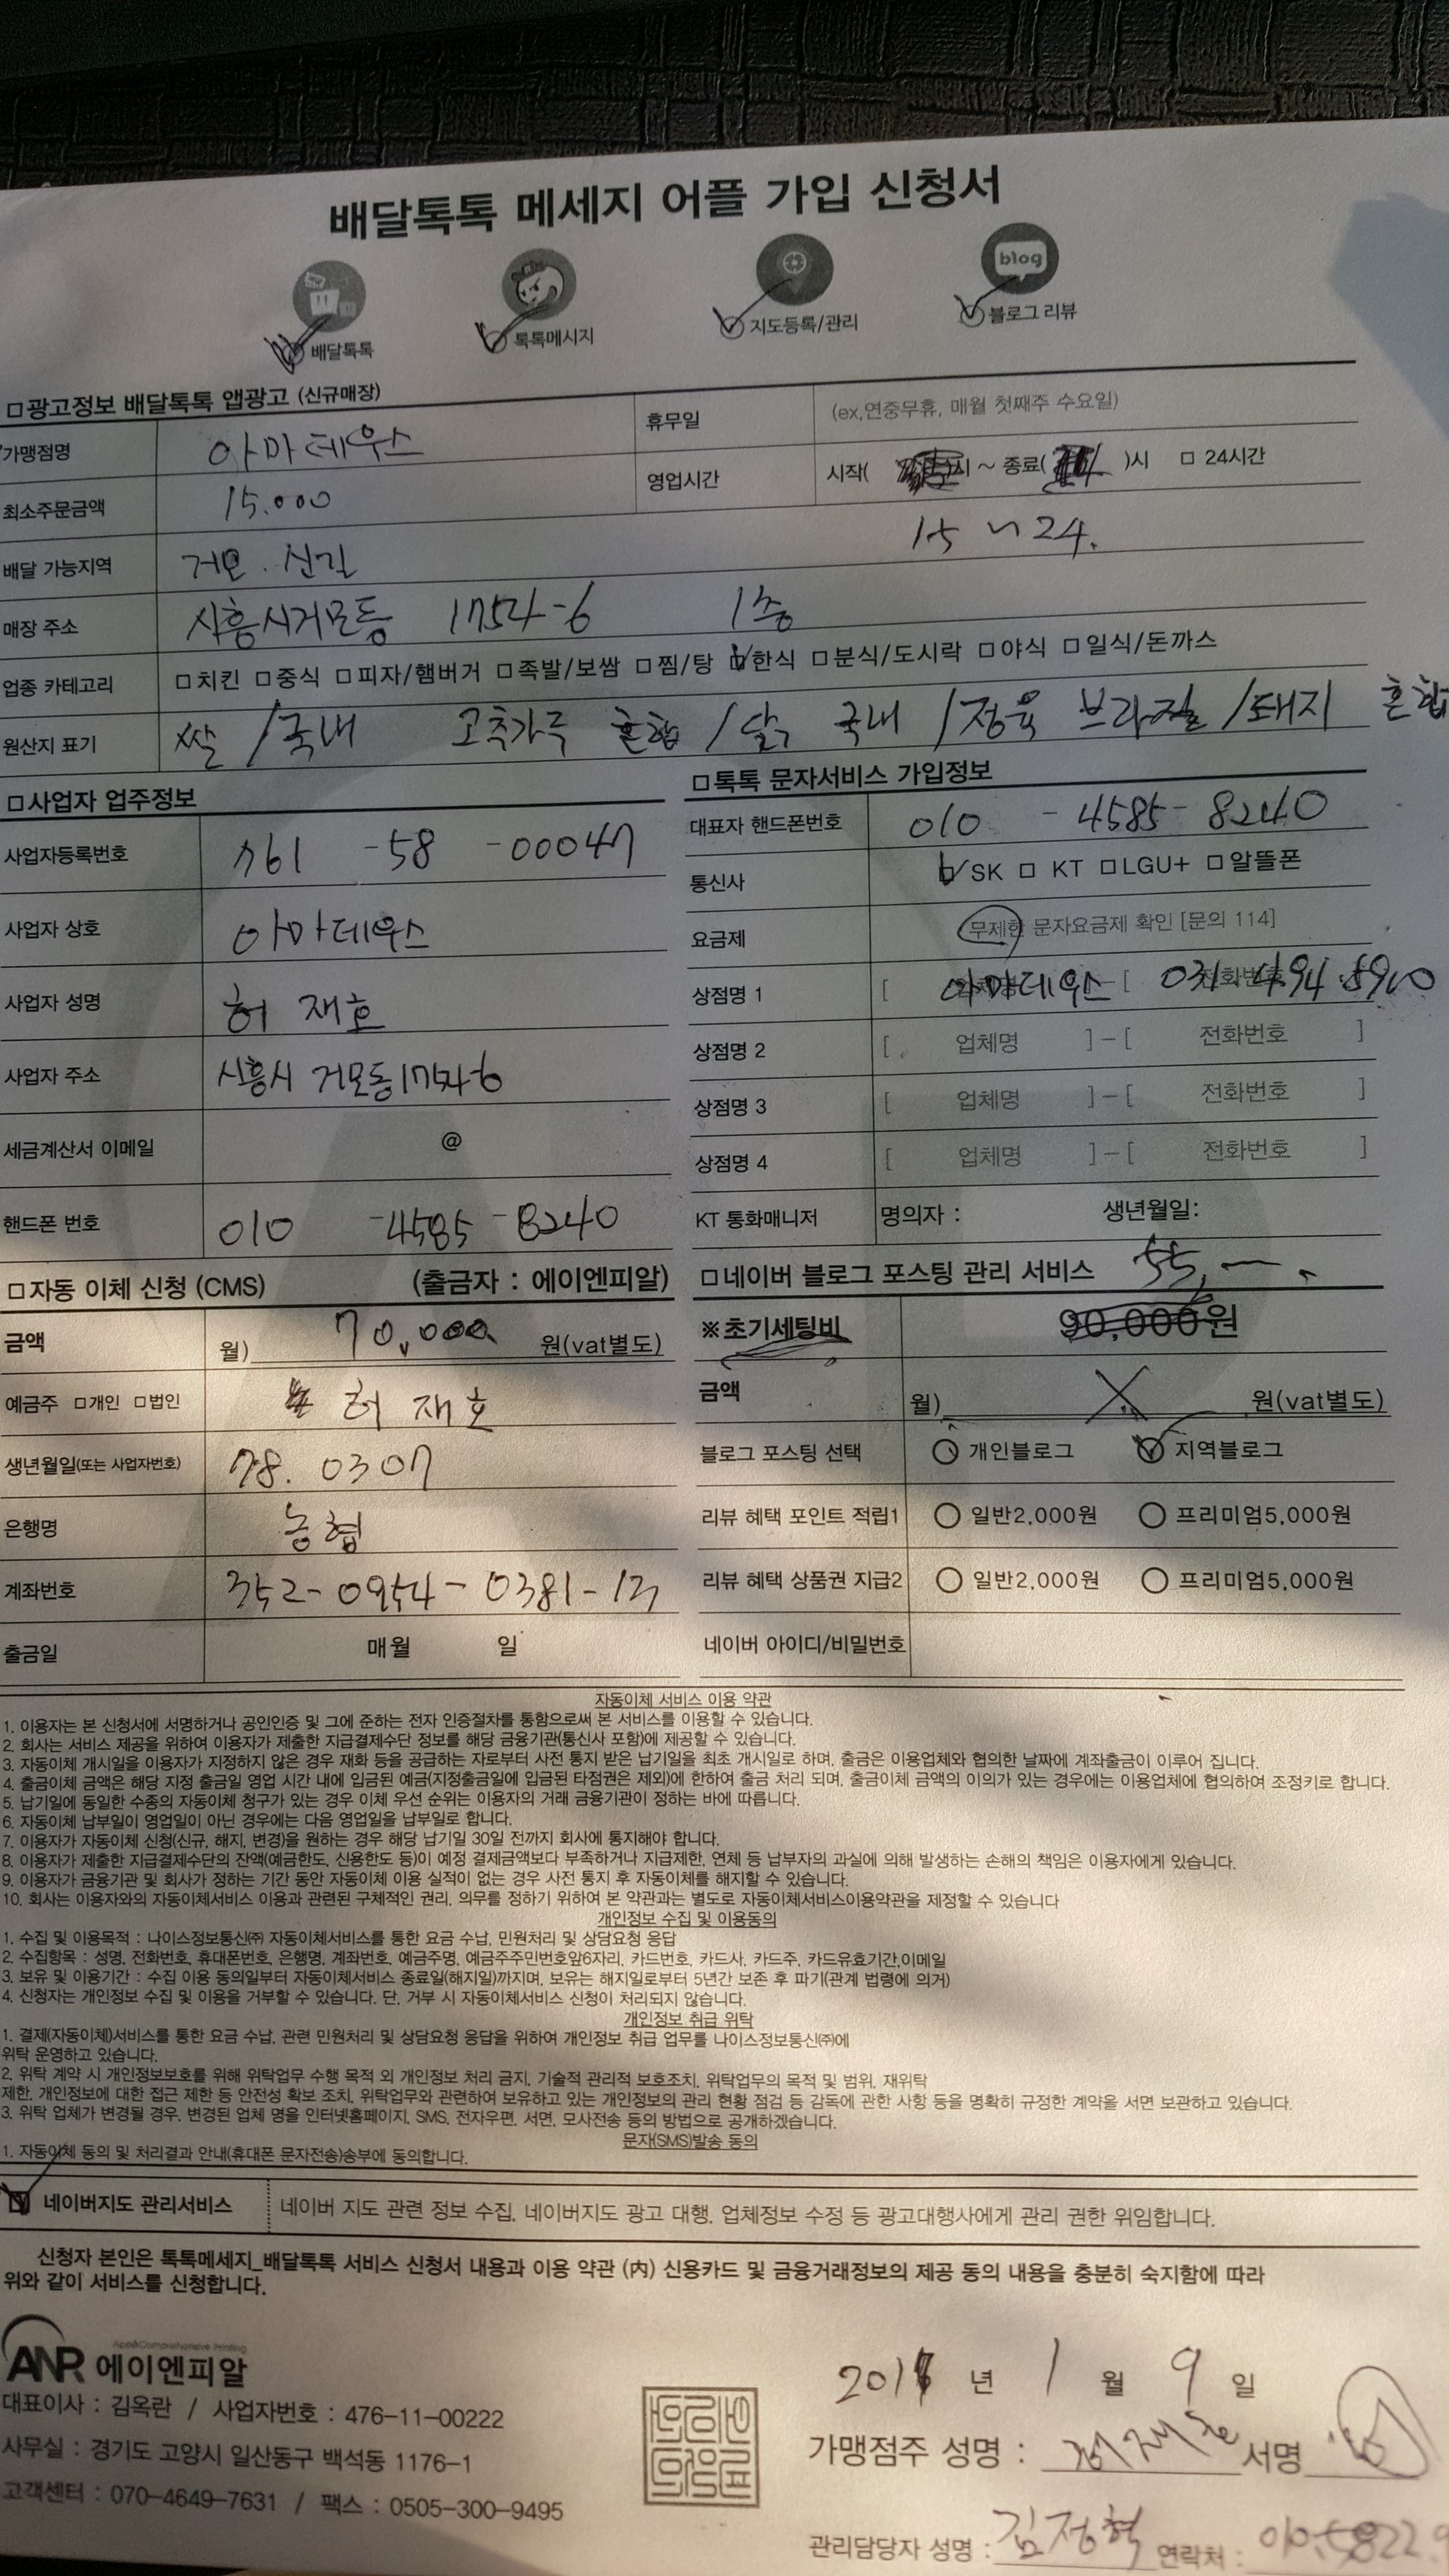 배달톡톡 메세지 어플 가입 신청서
blog
배달톡톡 톡톡메시지 지도등록/관리 블로그 리뷰
□광고정보 배달톡톡 앱광고 (신규매장)
가맹점명 아마데우스 휴무일 (ex,연중무휴, 매월 첫째주 수요일)
최소주문금액 15.000 영업시간 시작( 시 ~ 종료( )시 □ 24시간
15 ~ 24.
배달 가능지역 거모. 신길
매장 주소 시흥시거모동 1754-6 1층
업종 카테고리 □치킨 □중식 □피자/햄버거 □족발/보쌈 □찜/탕 □한식 □분식/도시락 □야식 □일식/돈까스
원산지 표기 쌀 /국내 고추가루 혼합 /닭 국내 /정육 브라질 /돼지 혼합
□사업자 업주정보
사업자등록번호 761 -58 -00047
사업자 상호 아마데우스
사업자 성명 허 재호
사업자 주소 시흥시 거모동1754-6
세금계산서 이메일 @
핸드폰 번호 010 -4585 -8240
□톡톡 문자서비스 가입정보
대표자 핸드폰번호 010 - 4585- 8240
통신사 □SK □ KT □LGU+ □알뜰폰
요금제 무제한 문자요금제 확인 [문의 114]
상점명 1 [ 아마데우스 ]-[ 031 494
상점명 2 [ 업체명 ]-[ 전화번호 ]
상점명 3 [ 업체명 ]-[ 전화번호 ]
상점명 4 [ 업체명 ]-[ 전화번호 ]
KT 통화매니저 명의자 : 생년월일:
□자동 이체 신청 (CMS) (출금자 : 에이엔피알)
금액 월) 70,000 원(vat별도)
예금주 □개인 □법인 허 재호
생년월일(또는 사업자번호) 78. 0307
은행명 농협
계좌번호 352-0954-0381-13
출금일 매월 일
□네이버 블로그 포스팅 관리 서비스 55,
※초기세팅비 90,000원
금액 월) 원(vat별도)
블로그 포스팅 선택 개인블로그 지역블로그
리뷰 혜택 포인트 적립1 일반2,000원 프리미엄5,000원
리뷰 혜택 상품권 지급2 일반2,000원 프리미엄5,000원
네이버 아이디/비밀번호
자동이체 서비스 이용 약관
1. 이용자는 본 신청서에 서명하거나 공인인증 및 그에 준하는 전자 인증절차를 통함으로써 본 서비스를 이용할 수 있습니다.
2. 회사는 서비스 제공을 위하여 이용자가 제출한 지급결제수단 정보를 해당 금융기관(통신사 포함)에 제공할 수 있습니다.
3. 자동이체 개시일을 이용자가 지정하지 않은 경우 재화 등을 공급하는 자로부터 사전 통지 받은 납기일을 최초 개시일로 하며, 출금은 이용업체와 협의한 날짜에 계좌출금이 이루어 집니다.
4. 출금이체 금액은 해당 지정 출금일 영업 시간 내에 입금된 예금(지정출금일에 입금된 타점권은 제외)에 한하여 출금 처리 되며, 출금이체 금액의 이의가 있는 경우에는 이용업체에 협의하여 조정키로 합니다.
5. 납기일에 동일한 수종의 자동이체 청구가 있는 경우 이체 우선 순위는 이용자의 거래 금융기관이 정하는 바에 따릅니다.
6. 자동이체 납부일이 영업일이 아닌 경우에는 다음 영업일을 납부일로 합니다.
7. 이용자가 자동이체 신청(신규, 해지, 변경)을 원하는 경우 해당 납기일 30일 전까지 회사에 통지해야 합니다.
8. 이용자가 제출한 지급결제수단의 잔액(예금한도, 신용한도 등)이 예정 결제금액보다 부족하거나 지급제한, 연체 등 납부자의 과실에 의해 발생하는 손해의 책임은 이용자에게 있습니다.
9. 이용자가 금융기관 및 회사가 정하는 기간 동안 자동이체 이용 실적이 없는 경우 사전 통지 후 자동이체를 해지할 수 있습니다.
10. 회사는 이용자와의 자동이체서비스 이용과 관련된 구체적인 권리, 의무를 정하기 위하여 본 약관과는 별도로 자동이체서비스이용약관을 제정할 수 있습니다
개인정보 수집 및 이용동의
1. 수집 및 이용목적 : 나이스정보통신㈜ 자동이체서비스를 통한 요금 수납, 민원처리 및 상담요청 응답
2. 수집항목 : 성명, 전화번호, 휴대폰번호, 은행명, 계좌번호, 예금주명, 예금주주민번호앞6자리, 카드번호, 카드사, 카드주, 카드유효기간,이메일
3. 보유 및 이용기간 : 수집 이용 동의일부터 자동이체서비스 종료일(해지일)까지며, 보유는 해지일로부터 5년간 보존 후 파기(관계 법령에 의거)
4. 신청자는 개인정보 수집 및 이용을 거부할 수 있습니다. 단, 거부 시 자동이체서비스 신청이 처리되지 않습니다.
개인정보 취급 위탁
1. 결제(자동이체)서비스를 통한 요금 수납, 관련 민원처리 및 상담요청 응답을 위하여 개인정보 취급 업무를 나이스정보통신㈜에
위탁 운영하고 있습니다.
2. 위탁 계약 시 개인정보보호를 위해 위탁업무 수행 목적 외 개인정보 처리 금지, 기술적 관리적 보호조치, 위탁업무의 목적 및 범위, 재위탁
제한, 개인정보에 대한 접근 제한 등 안전성 확보 조치, 위탁업무와 관련하여 보유하고 있는 개인정보의 관리 현황 점검 등 감독에 관한 사항 등을 명확히 규정한 계약을 서면 보관하고 있습니다.
3. 위탁 업체가 변경될 경우, 변경된 업체 명을 인터넷홈페이지, SMS, 전자우편, 서면, 모사전송 등의 방법으로 공개하겠습니다.
문자(SMS)발송 동의
1. 자동이체 동의 및 처리결과 안내(휴대폰 문자전송)송부에 동의합니다.
네이버지도 관리서비스 네이버 지도 관련 정보 수집, 네이버지도 광고 대행, 업체정보 수정 등 광고대행사에게 관리 권한 위임합니다.
신청자 본인은 톡톡메세지_배달톡톡 서비스 신청서 내용과 이용 약관 (内) 신용카드 및 금융거래정보의 제공 동의 내용을 충분히 숙지함에 따라
위와 같이 서비스를 신청합니다.
App&Comprehensive Printing
ANR 에이엔피알
대표이사 : 김옥란 / 사업자번호 : 476-11-00222
사무실 : 경기도 고양시 일산동구 백석동 1176-1
고객센터 : 070-4649-7631 / 팩스 : 0505-300-9495
201 년 1 월 9 일
가맹점주 성명 : 허재호 서명
관리담당자 성명 : 김정혁 연락처 : 010.5822.9